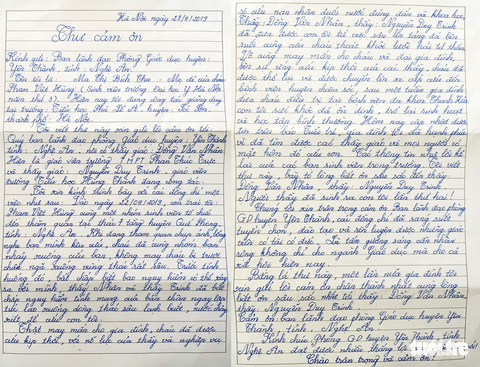 Hà Nội ngày 28/9/2019
Thư cảm ơn
Kính gửi: Ban lãnh đạo Phòng Giáo dục huyện:
Yên Thành, tỉnh: Nghệ An.
Tên tôi là: Ma Thị Bích Thu - Mẹ đẻ của cháu
Phan Việt Hùng (Sinh viên trường Đại học Y Hà Nội
năm thứ 3). Hiện nay tôi đang công tác giảng dạy
tại trường Tiểu học Phù Lỗ A, huyện Sóc Sơn,
thành phố: Hà Nội.
Tôi viết thư này xin gửi lời cảm ơn tới:
Quý ban lãnh đạo phòng giáo dục huyện Yên Thành
tỉnh Nghệ An, tới thầy giáo: Đồng Văn Nhân
Hiện là giáo viên trường THPT Phan Thúc Trực
và thầy giáo: Nguyễn Duy Trinh, giáo viên
trường Tiểu học Hùng Thành đang công tác.
Tôi xin kính trình bày với các đồng chí một
việc như sau: Vào ngày 22/09/2019, con trai tôi:
Phan Việt Hùng cùng một nhóm sinh viên tổ chức
đến thăm quan tại thác 7 tầng huyện Quế Phong,
tỉnh: Nghệ An. Khi đang tham quan chụp ảnh lòng
nghe bạn mình kêu cứu, cháu đã cùng nhóm bạn
nhảy xuống cứu bạn, không may cháu bị trượt
chân ngã xuống vùng thác rất sâu. Trước tình
huống đó bất chấp hết bao nguy hiểm có thể xảy
ra với mình, thầy Nhân và thầy Trinh đã bất
chấp nguy hiểm tính mạng của bản thân ngay lập
tức lao xuống dòng thác sâu lạnh buốt, nước chảy
xiết để cứu con tôi.
Thật may mắn cho gia đình, cháu đã được
cứu kịp thời, với nỗ lực của thầy và nghiệp vụ
sơ cứu nạn nhân đuối nước đúng đắn và khoa học,
Thầy Đồng Văn Nhân, thầy: Nguyễn Duy Trinh
đã đưa được con tôi từ vực sâu lên tảng đá bên
suối cùng cháu thoát khỏi lưỡi hái tử thần.
Vô cùng may mắn cho cháu và đại gia đình,
bên sự ứng cứu kịp thời của các thầy, cháu đã
được thở lại và được chuyển lên xe cấp cứu đến
bệnh viện huyện chăm sóc, sau một tuần gia đình
đưa cháu điều trị tại bệnh viện đa khoa Thành Hóa
con tôi sức khỏe đã ổn định, trở lại sinh hoạt
và học tập bình thường. Hôm nay, còn nhờ được
tin trên báo Tuổi Trẻ, gia đình tôi đã hạnh phúc
vì đã tìm được các thầy giáo và mọi người có
mặt hôm đó cứu con. Các thông tin thu lời kể
lại của các bạn sinh viên trong trường. Tôi viết
thư này, bày tỏ lòng biết ơn sâu sắc đến thầy
Đồng Văn Nhân, thầy: Nguyễn Duy Trinh.
Người thầy đã sinh ra con tôi lần thứ hai!
Thưa tôi xin trân trọng cảm ơn Ban lãnh đạo phòng
GD huyện Yên Thành, các đồng chí đã sáng suốt
tuyển chọn, đào tạo và rèn luyện được những giáo
viên có tài có đức. Là tấm gương sáng cần nhân
rộng không chỉ cho ngành Giáo dục mà cho cả
xã hội hiện nay.
Bằng lá thư này, một lần nữa gia đình tôi
xin gửi lời cảm ơn chân thành nhất cùng lòng
biết ơn sâu sắc nhất tới thầy: Đồng Văn Nhân,
thầy: Nguyễn Duy Trinh.
Cảm ơn ban lãnh đạo phòng Giáo dục huyện Yên
Thành, tỉnh: Nghệ An.
Kính chúc Phòng GD huyện Yên Thành, tỉnh
Nghệ An đạt được nhiều thắng lợi
Chào trân trọng và cảm ơn!